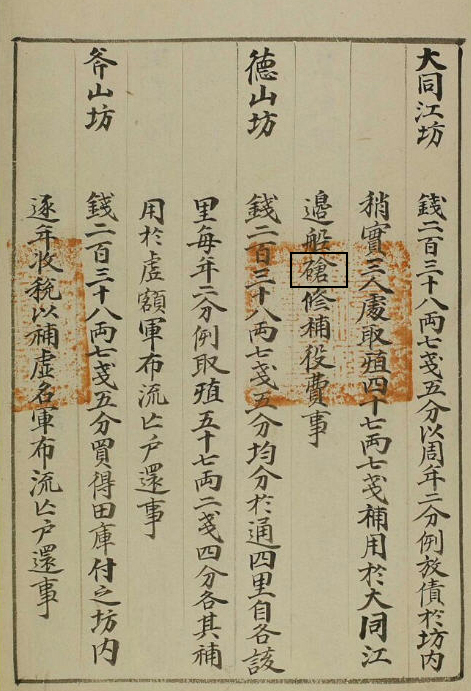 大同江坊 錢二百三十八両七戔五分以周年二分例放債於坊內
稍實三人處取殖四十七両七戔補用於大同江
邊船槍修補役費事
德山坊 錢二百三十八両七戔五分均分於通四里自各該
里每年二分例取殖五十七両二戔四分各其補
用於虛額軍布流亡戶還事
斧山坊 錢二百三十八両七戔五分買得田庫付之坊內
逐年收稅以補虛名軍布流亡戶還事